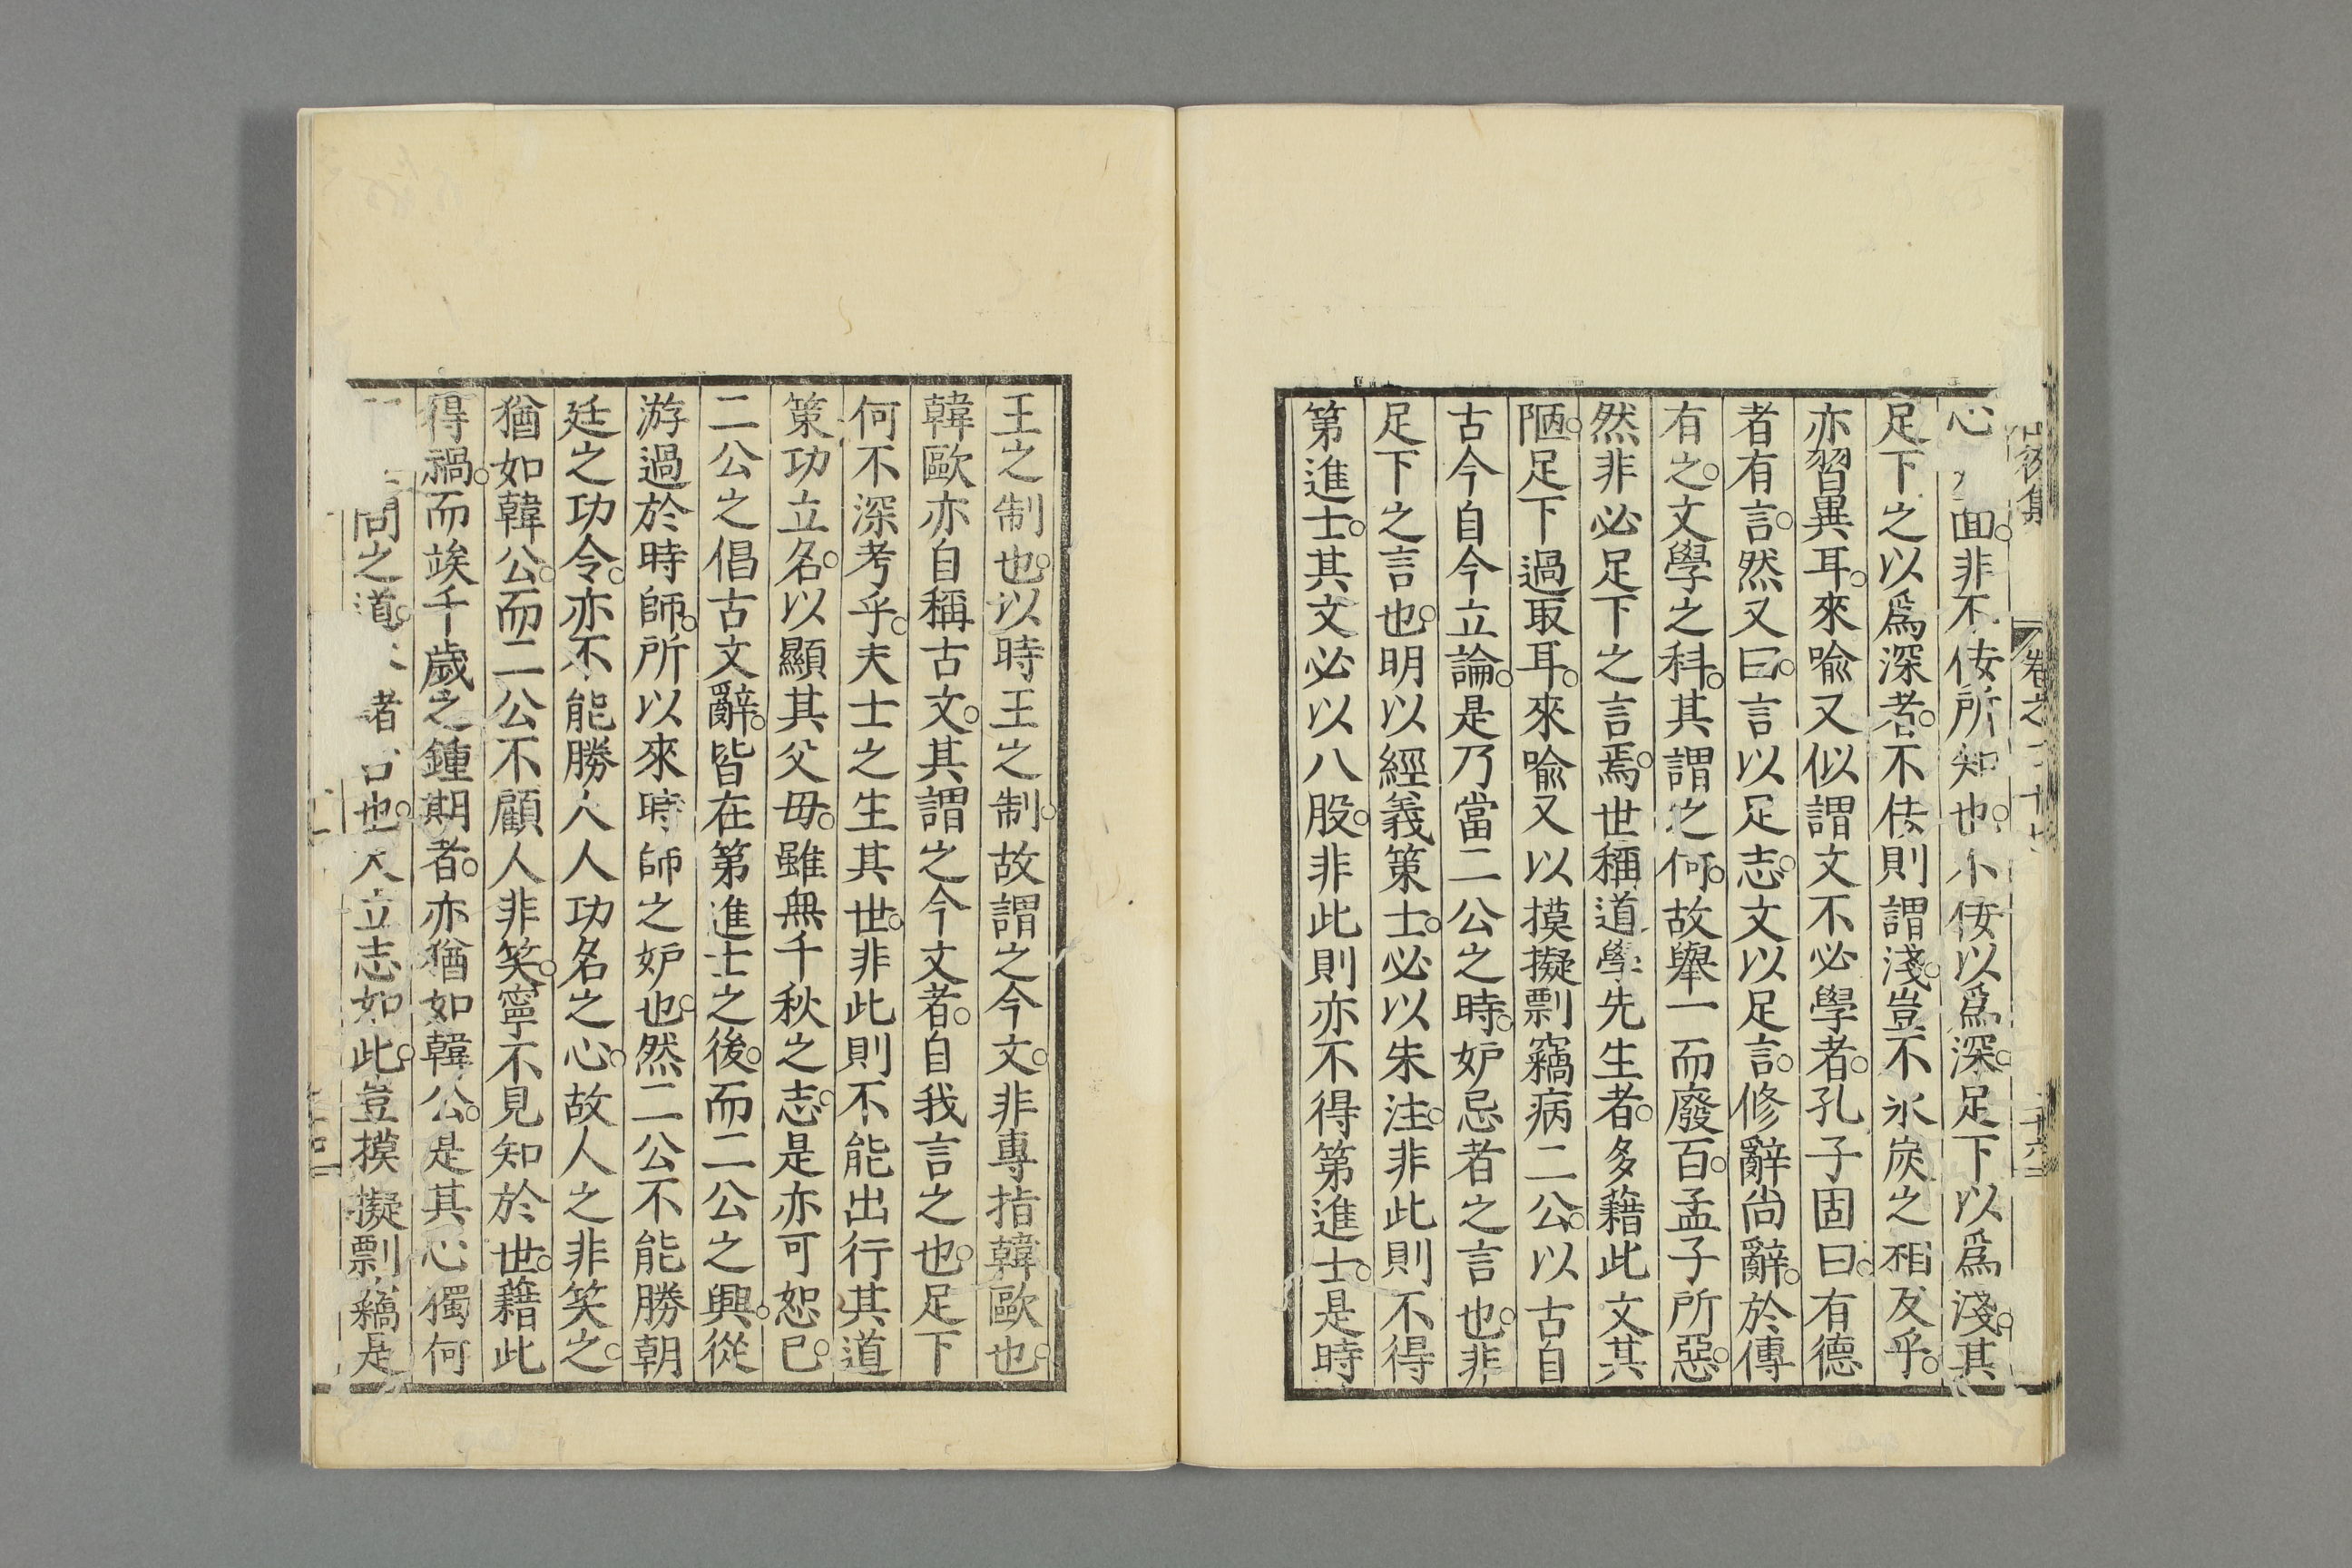 心面。非不佞所知也。不佞以爲深。足下以爲淺。其
足下之以爲深者。不佞則謂淺。豈不氷炭之相反乎。
亦習異耳。來喻又似謂文不必學者。孔子固曰。有德
者有言。然又曰。言以足志。文以足言。修辭尚辭。於傳
有之。文學之科。其謂之何。故舉一而廢百。孟子所惡。
然非必足下之言焉。世稱道學先生者。多藉此文其
陋。足下過取耳。來喻又以摸擬剽竊病二公。以古自
古今自今立論。是乃當二公之時。妒忌者之言也。非
足下之言也。明以經義策士。必以朱注。非此則不得
第進士。其文必以八股。非此則亦不得第進士。是時
後集
卷之二十七
二十六
王之制也。以時王之制。故謂之今文。非專指韓歐也。
韓歐亦自稱古文。其謂之今文者。自我言之也。足下
何不深考乎。夫士之生其世。非此則不能出行其道
策功立名。以顯其父母。雖無千秋之志。是亦可恕已。
二公之倡古文辭。皆在第進士之後。而二公之興。從
游過於時師。所以來時師之妒也。然二公不能勝朝
廷之功令。亦不能勝人人功名之心。故人之非笑之。
猶如韓公。而二公不顧人非笑。寧不見知於世。藉此
得禍。而竢千歲之鍾期者。亦猶如韓公。是其心獨何
同之道。者也。立志如此。豈摸擬剽竊是